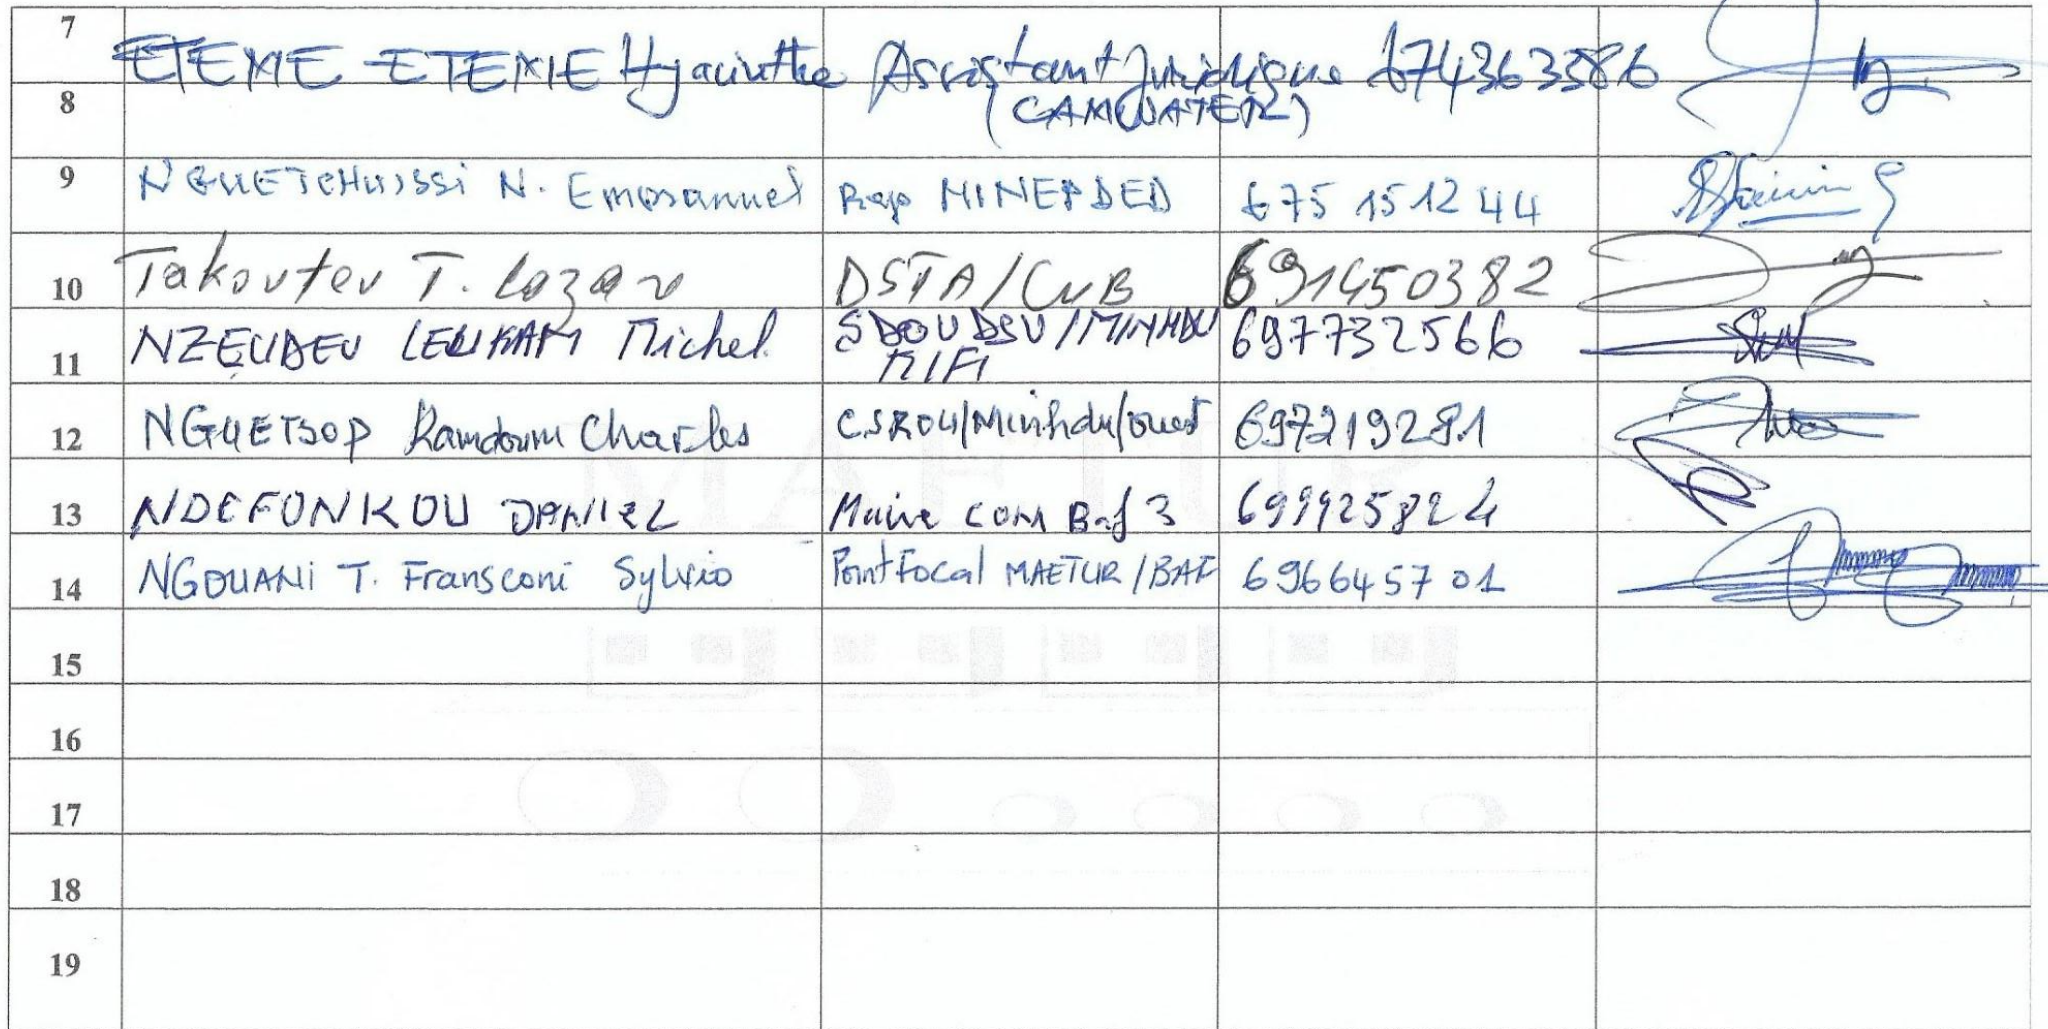 7
ETEME ETEME Hyacinthe Assistant Juridique 674363586
8 (CAMWATER)
9 NGUETCHUISSI N. Emmanuel Rep MINEPDED 675 151244
10 Takoutev T. Lazare DSTA/CUB 691450382
11 NZEUDEU LEUKAM Michel SDOUDSU/MINHDU 697732566
MIFI
12 NGUETSOP Ramdoum Charles CSROU/Minhdu/Ouest 697219281
13 NDEFONKOU DANIEL Maire COM Baf 3 699925824
14 NGOUANI T. Fransconi Sylvio Point Focal MAETUR/BAF 696645701
MAETUR
15
16
17
18
19